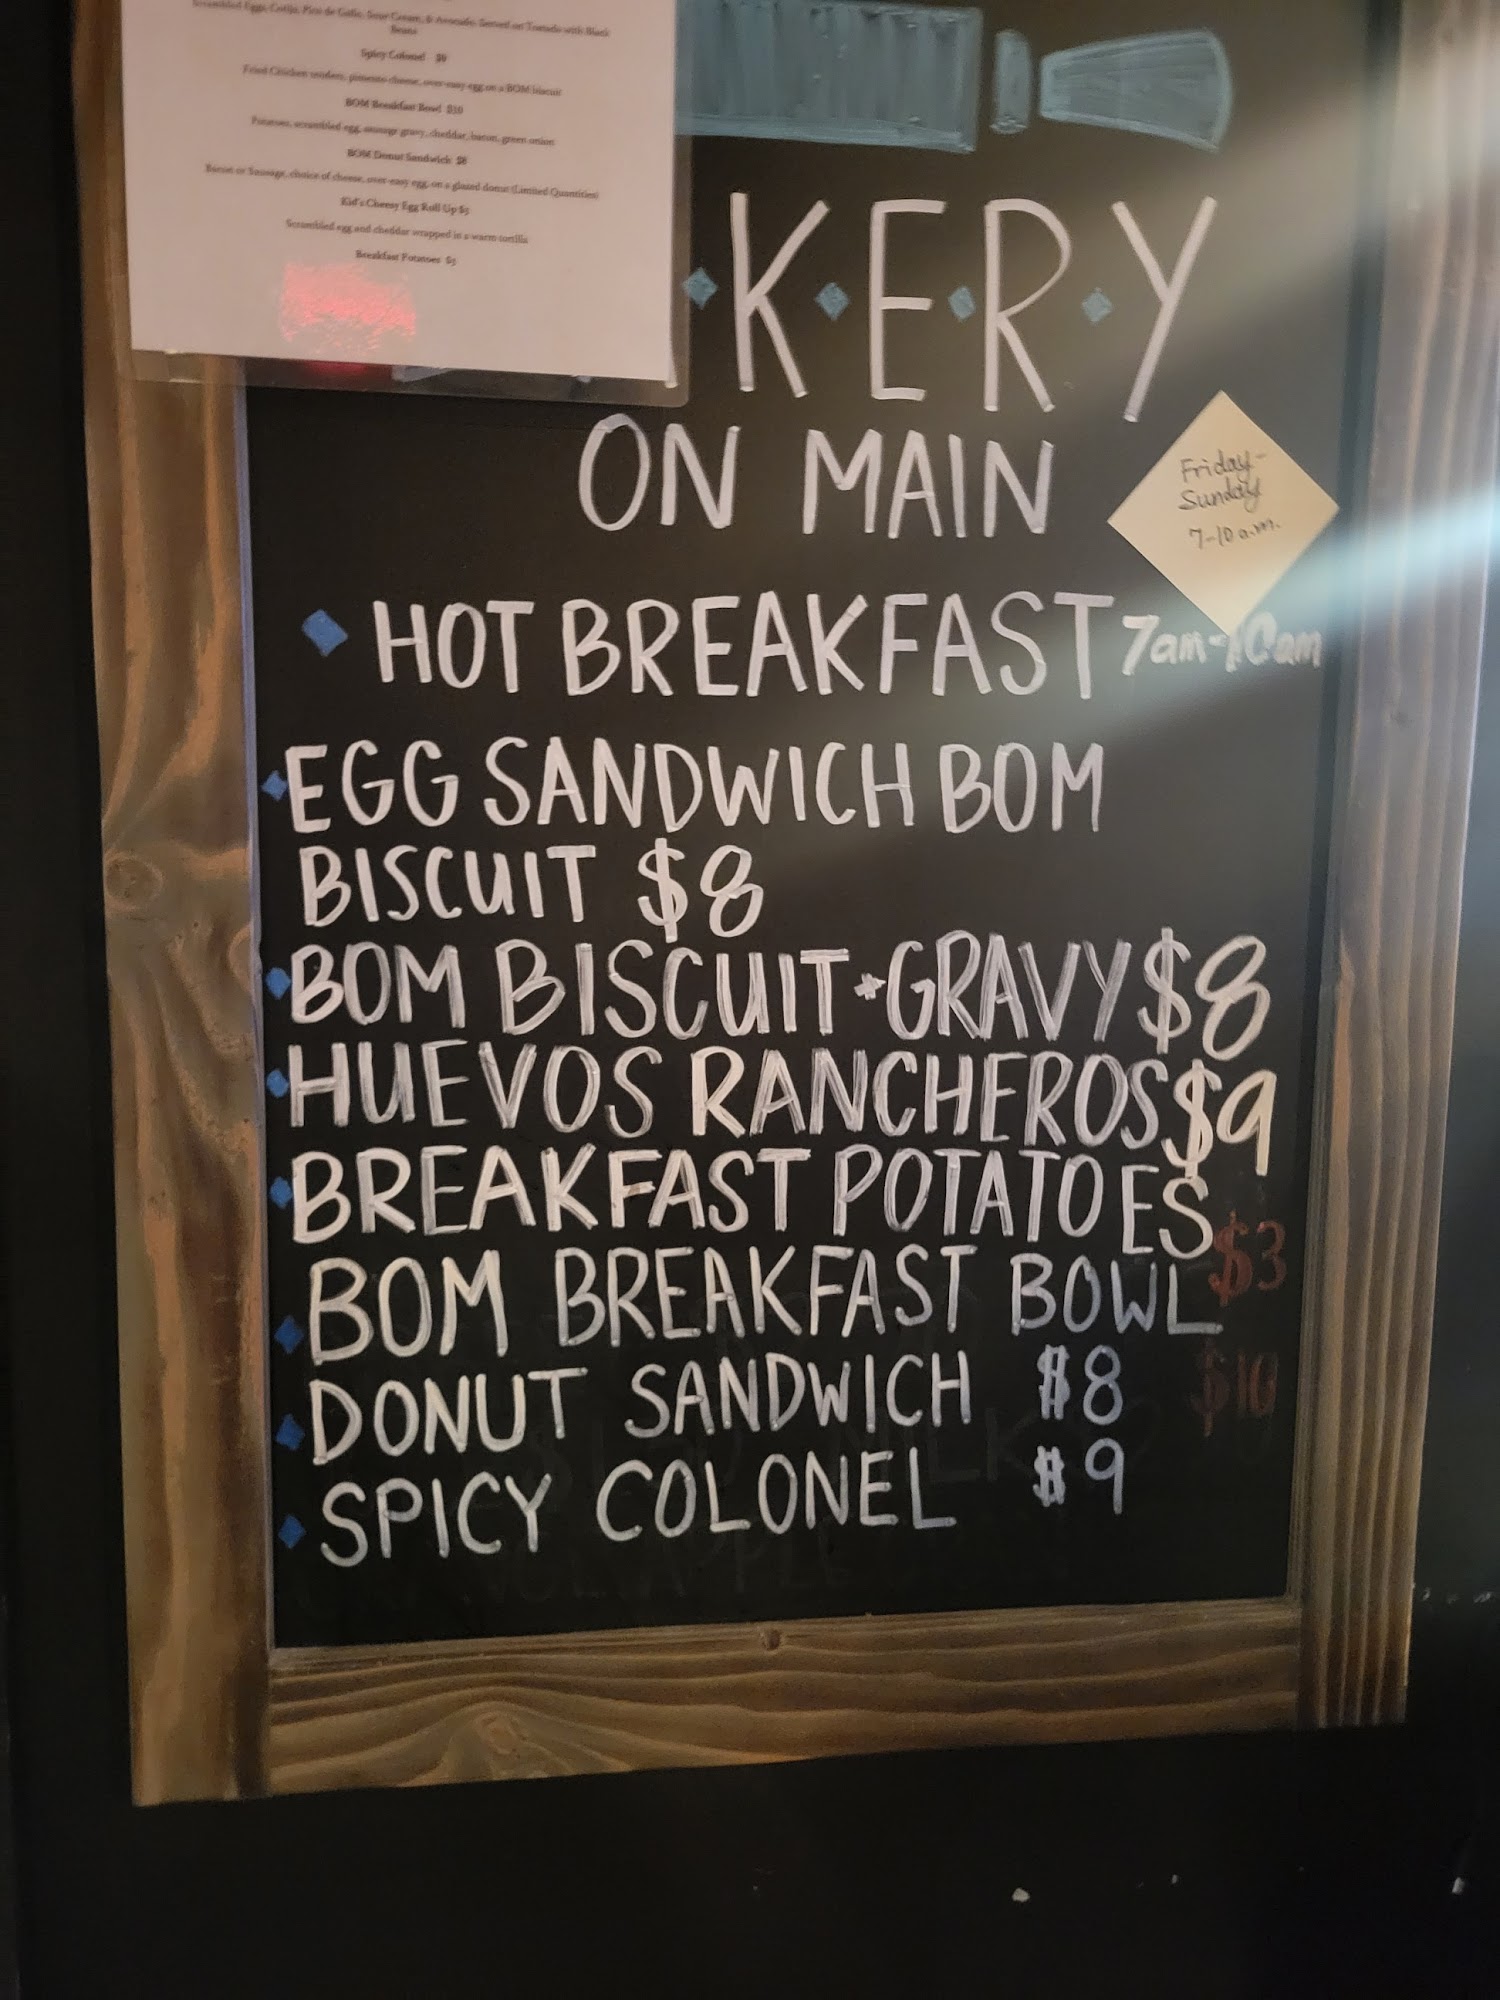 Scrambled Eggs, Cotija, Pico de Gallo, Sour Cream, & Avocado. Served on Tostado with Black
Beans
Spicy Colonel $9
Fried Chicken tenders, pimento cheese, over-easy egg on a BOM biscuit
BOM Breakfast Bowl $10
Potatoes, scrambled egg, sausage gravy, cheddar, bacon, green onion
BOM Donut Sandwich $8
Bacon or Sausage, choice of cheese, over-easy egg, on a glazed donut (Limited Quantities)
Kid's Cheesy Egg Roll Up $5
Scrambled egg and cheddar wrapped in a warm tortilla
Breakfast Potatoes $3
KERY
ON MAIN
Friday-
Sunday
7-10 a.m.
HOT BREAKFAST 7am-10am
EGG SANDWICH BOM
BISCUIT $8
BOM BISCUIT + GRAVY $8
HUEVOS RANCHEROS $9
BREAKFAST POTATOES
$3
BOM BREAKFAST BOWL
$10
DONUT SANDWICH $8
SPICY COLONEL $9